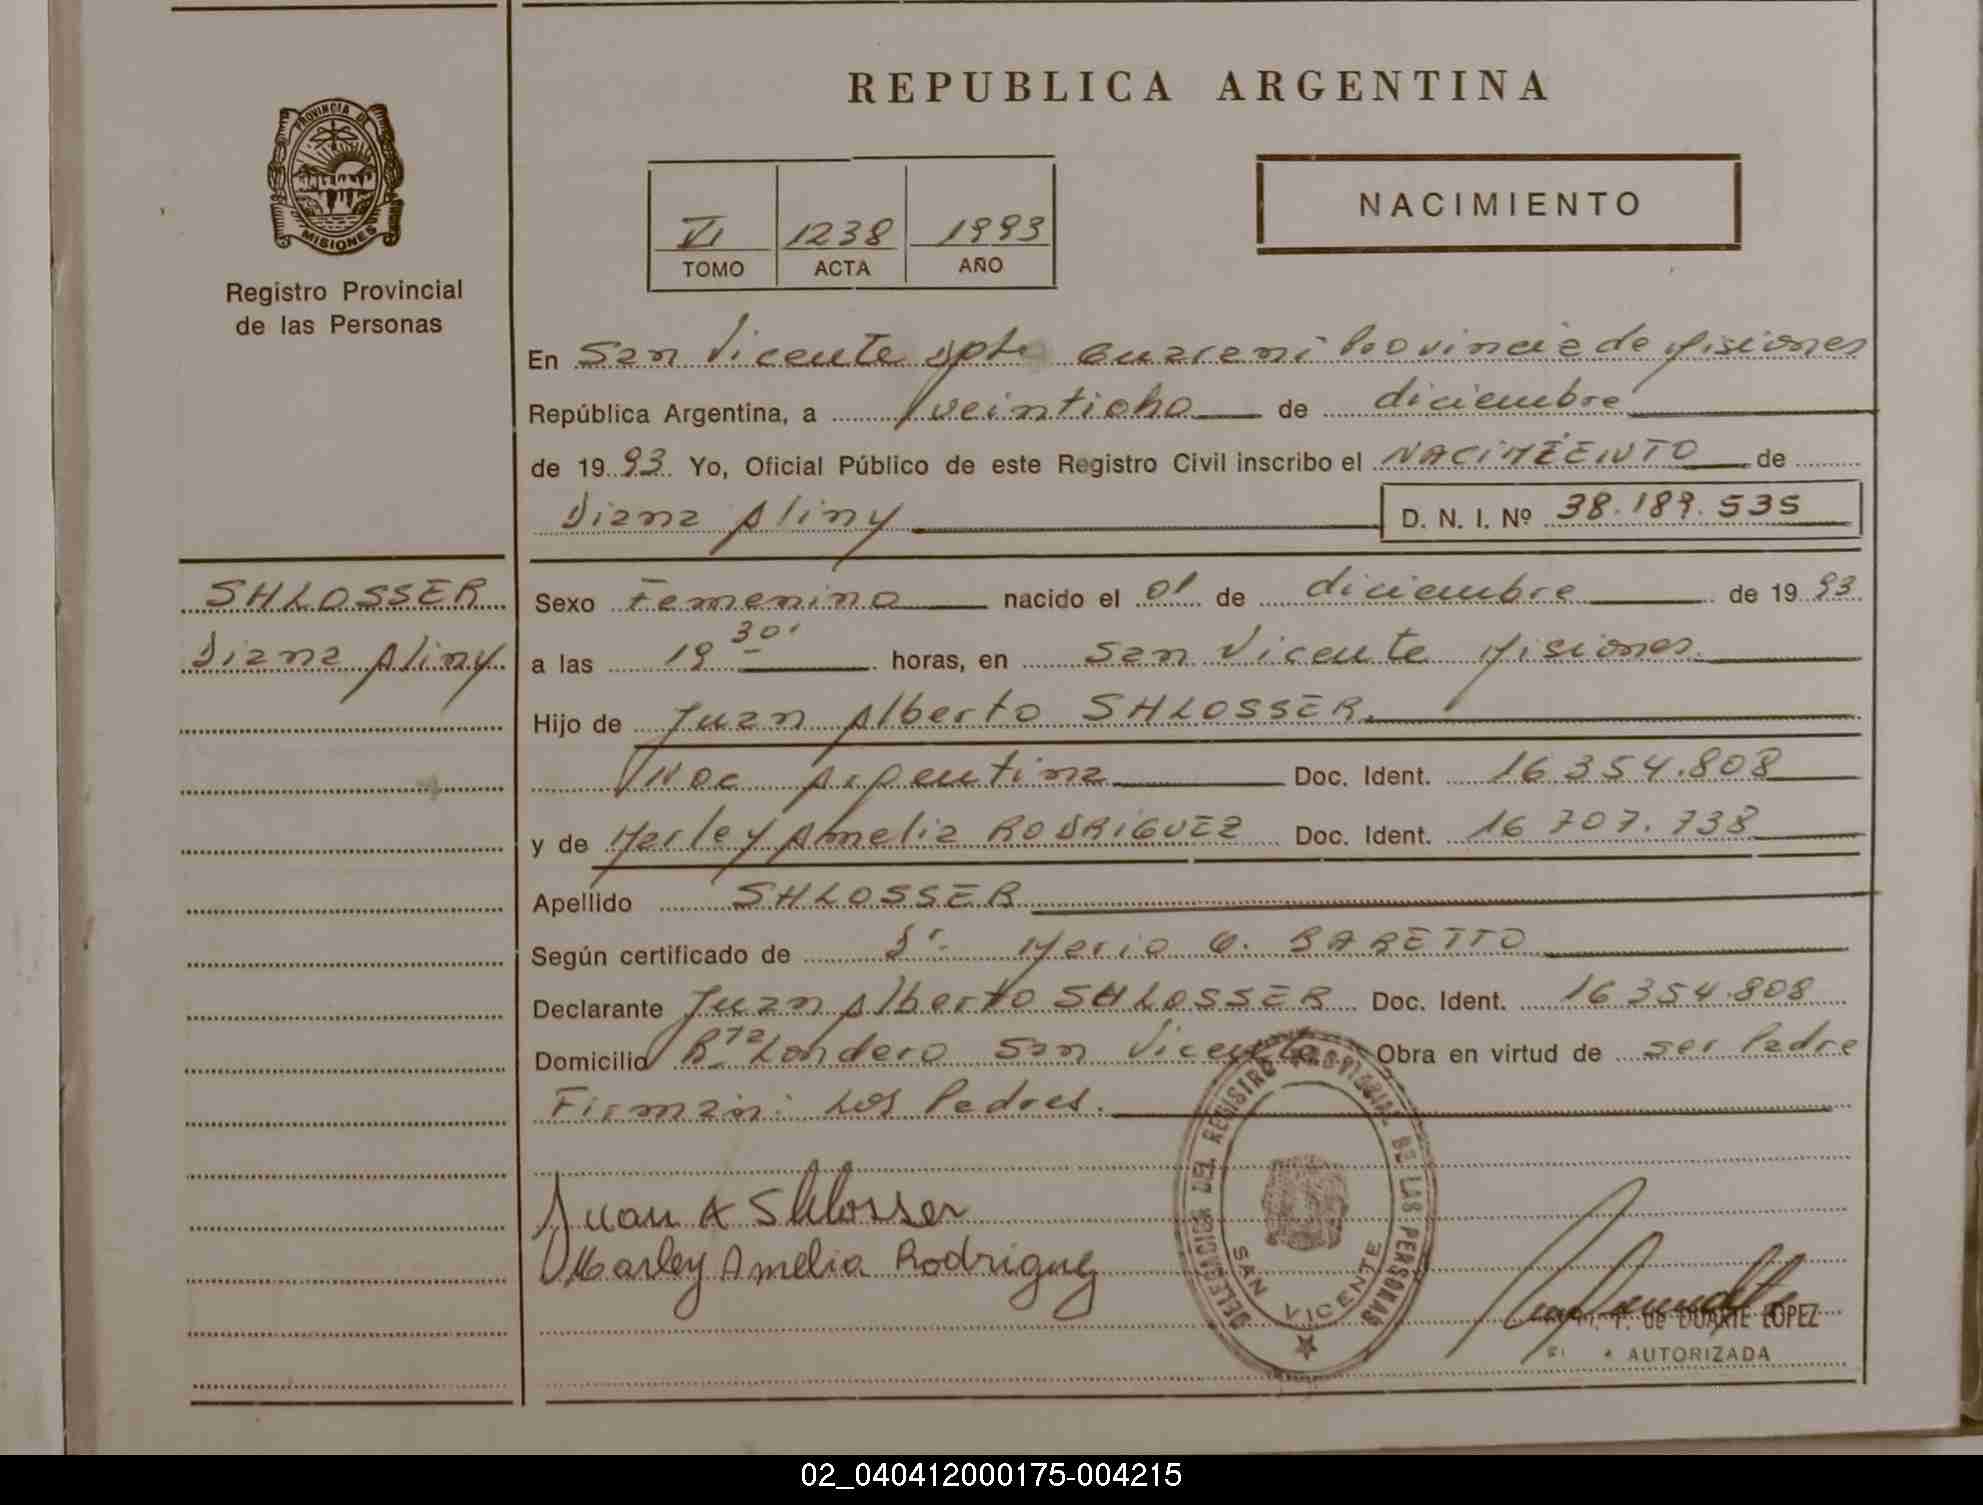 REPUBLICA ARGENTINA
PROVINCIA DE
MISIONES
Registro Provincial
de las Personas
VI 1238 1993
TOMO ACTA AÑO
NACIMIENTO
En San Vicente dpto Guarani Provincia de Misiones
República Argentina, a veintiocho de diciembre
de 1993 Yo, Oficial Público de este Registro Civil inscribo el NACIMIENTO de
Diana Aliny D. N. I. Nº 38.189.535
SHLOSSER
Diana Aliny
Sexo Femenino nacido el 01 de diciembre de 1993
a las 19 30' horas, en San Vicente Misiones
Hijo de Juan Alberto SHLOSSER
Nac Argentina Doc. Ident. 16 354.808
y de Marley Amelia RODRIGUEZ Doc. Ident. 16 707.738
Apellido SHLOSSER
Según certificado de Dr. Mario O. BARETTO
Declarante Juan Alberto SHLOSSER Doc. Ident. 16 354.808
Domicilio Rta Londero San Vicente Obra en virtud de ser Padre
Firman: Los Padres.
Juan A Shlosser
Marley Amelia Rodriguez
DELEGACION DEL REGISTRO PROVINCIAL DE LAS PERSONAS
SAN VICENTE
de DUARTE LOPEZ
AUTORIZADA
02_040412000175-004215